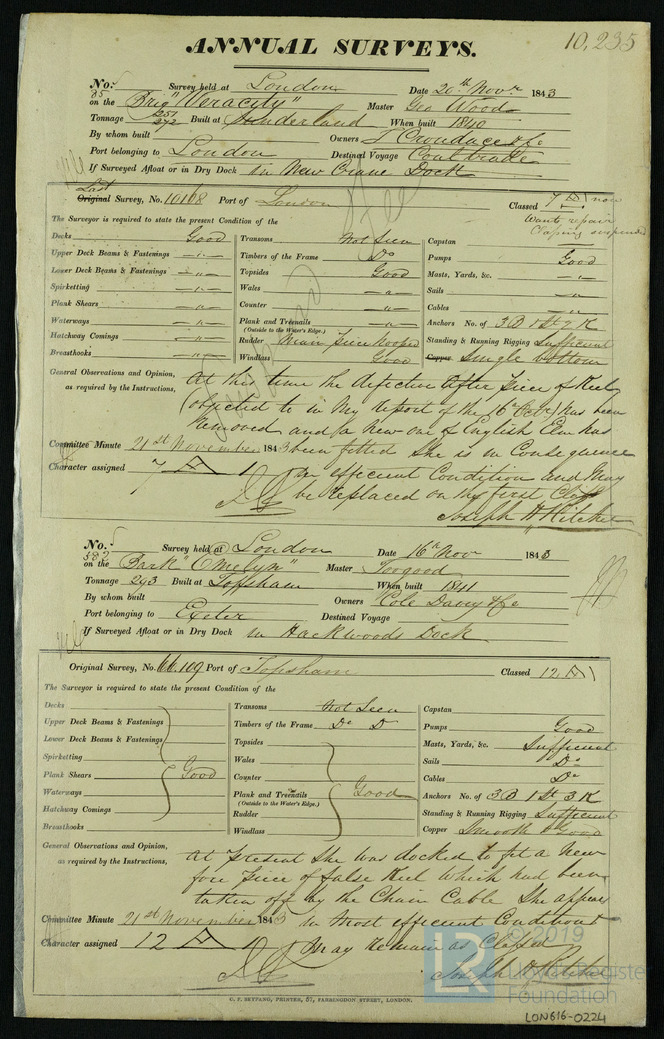 10,235
ANNUAL SURVEYS.
No. 85 Survey held at London Date 20th Novr 1843
on the Brig "Veracity" Master Geo Wood
Tonnage 251 272 Built at Sunderland When built 1840
By whom built Owners T Croudace & Co
Port belonging to London Destined Voyage Coal trade
If Surveyed Afloat or in Dry Dock in New Crane Dock
Last
Original Survey, No. 10168 Port of London Classed 7 A 1 now
Wants repair
Classing suspended
The Surveyor is required to state the present Condition of the
Decks Good
Upper Deck Beams & Fastenings —"—
Lower Deck Beams & Fastenings —"—
Spirketting —"—
Plank Shears —"—
Waterways —"—
Hatchway Comings —"—
Breasthooks —"—
Transoms Not Seen
Timbers of the Frame Do
Topsides Good
Wales —"—
Counter —"—
Plank and Treenails —"—
(Outside to the Water's Edge.)
Rudder Main piece
Windlass Good
Capstan
Pumps Good
Masts, Yards, &c. "
Sails —"—
Cables —"—
Anchors No. of 3 B 1 St 2 K
Standing & Running Rigging Sufficient
Copper Single bottom
General Observations and Opinion,
as required by the Instructions,
At this time the defective After piece of Keel
(objected to in my report of the 16th Octr) has been
removed and a new one of English Elm has
been fitted She is in Consequence
in efficient Condition and may
be replaced on the first Class
Committee Minute 21st November 1843
Character assigned 7 A 1
Joseph H Kitchen
No. 582 Survey held at London Date 16th Nov 1843
on the Bark "Emelyn" Master Toogood
Tonnage 293 Built at Topsham When built 1841
By whom built Owners Cole Davy & Co
Port belonging to Exeter Destined Voyage
If Surveyed Afloat or in Dry Dock in Hackwoods Dock
Original Survey, No. 66.109 Port of Topsham Classed 12 A 1
The Surveyor is required to state the present Condition of the
Decks
Upper Deck Beams & Fastenings
Lower Deck Beams & Fastenings
Spirketting
Plank Shears Good
Waterways
Hatchway Comings
Breasthooks
Transoms Not Seen
Timbers of the Frame Do Do
Topsides
Wales
Counter
Plank and Treenails Good
(Outside to the Water's Edge.)
Rudder
Windlass
Capstan
Pumps Good
Masts, Yards, &c. Sufficient
Sails Do
Cables Do
Anchors No. of 3 B 1 St 3 K
Standing & Running Rigging Sufficient
Copper Smooth & Good
General Observations and Opinion,
as required by the Instructions,
At present She was docked to fit a New
fore piece of false Keel which had been
taken off by the Chain Cable She appears
in most efficient Condition &
may remain as Classed
Committee Minute 21st November 1843
Character assigned 12 A 1
Joseph H Kitchen
C. F. SEYFANG, PRINTER, 57, FARRINGDON STREET, LONDON.
LR
© 2019
Lloyd's Register
Foundation
LON616-0224